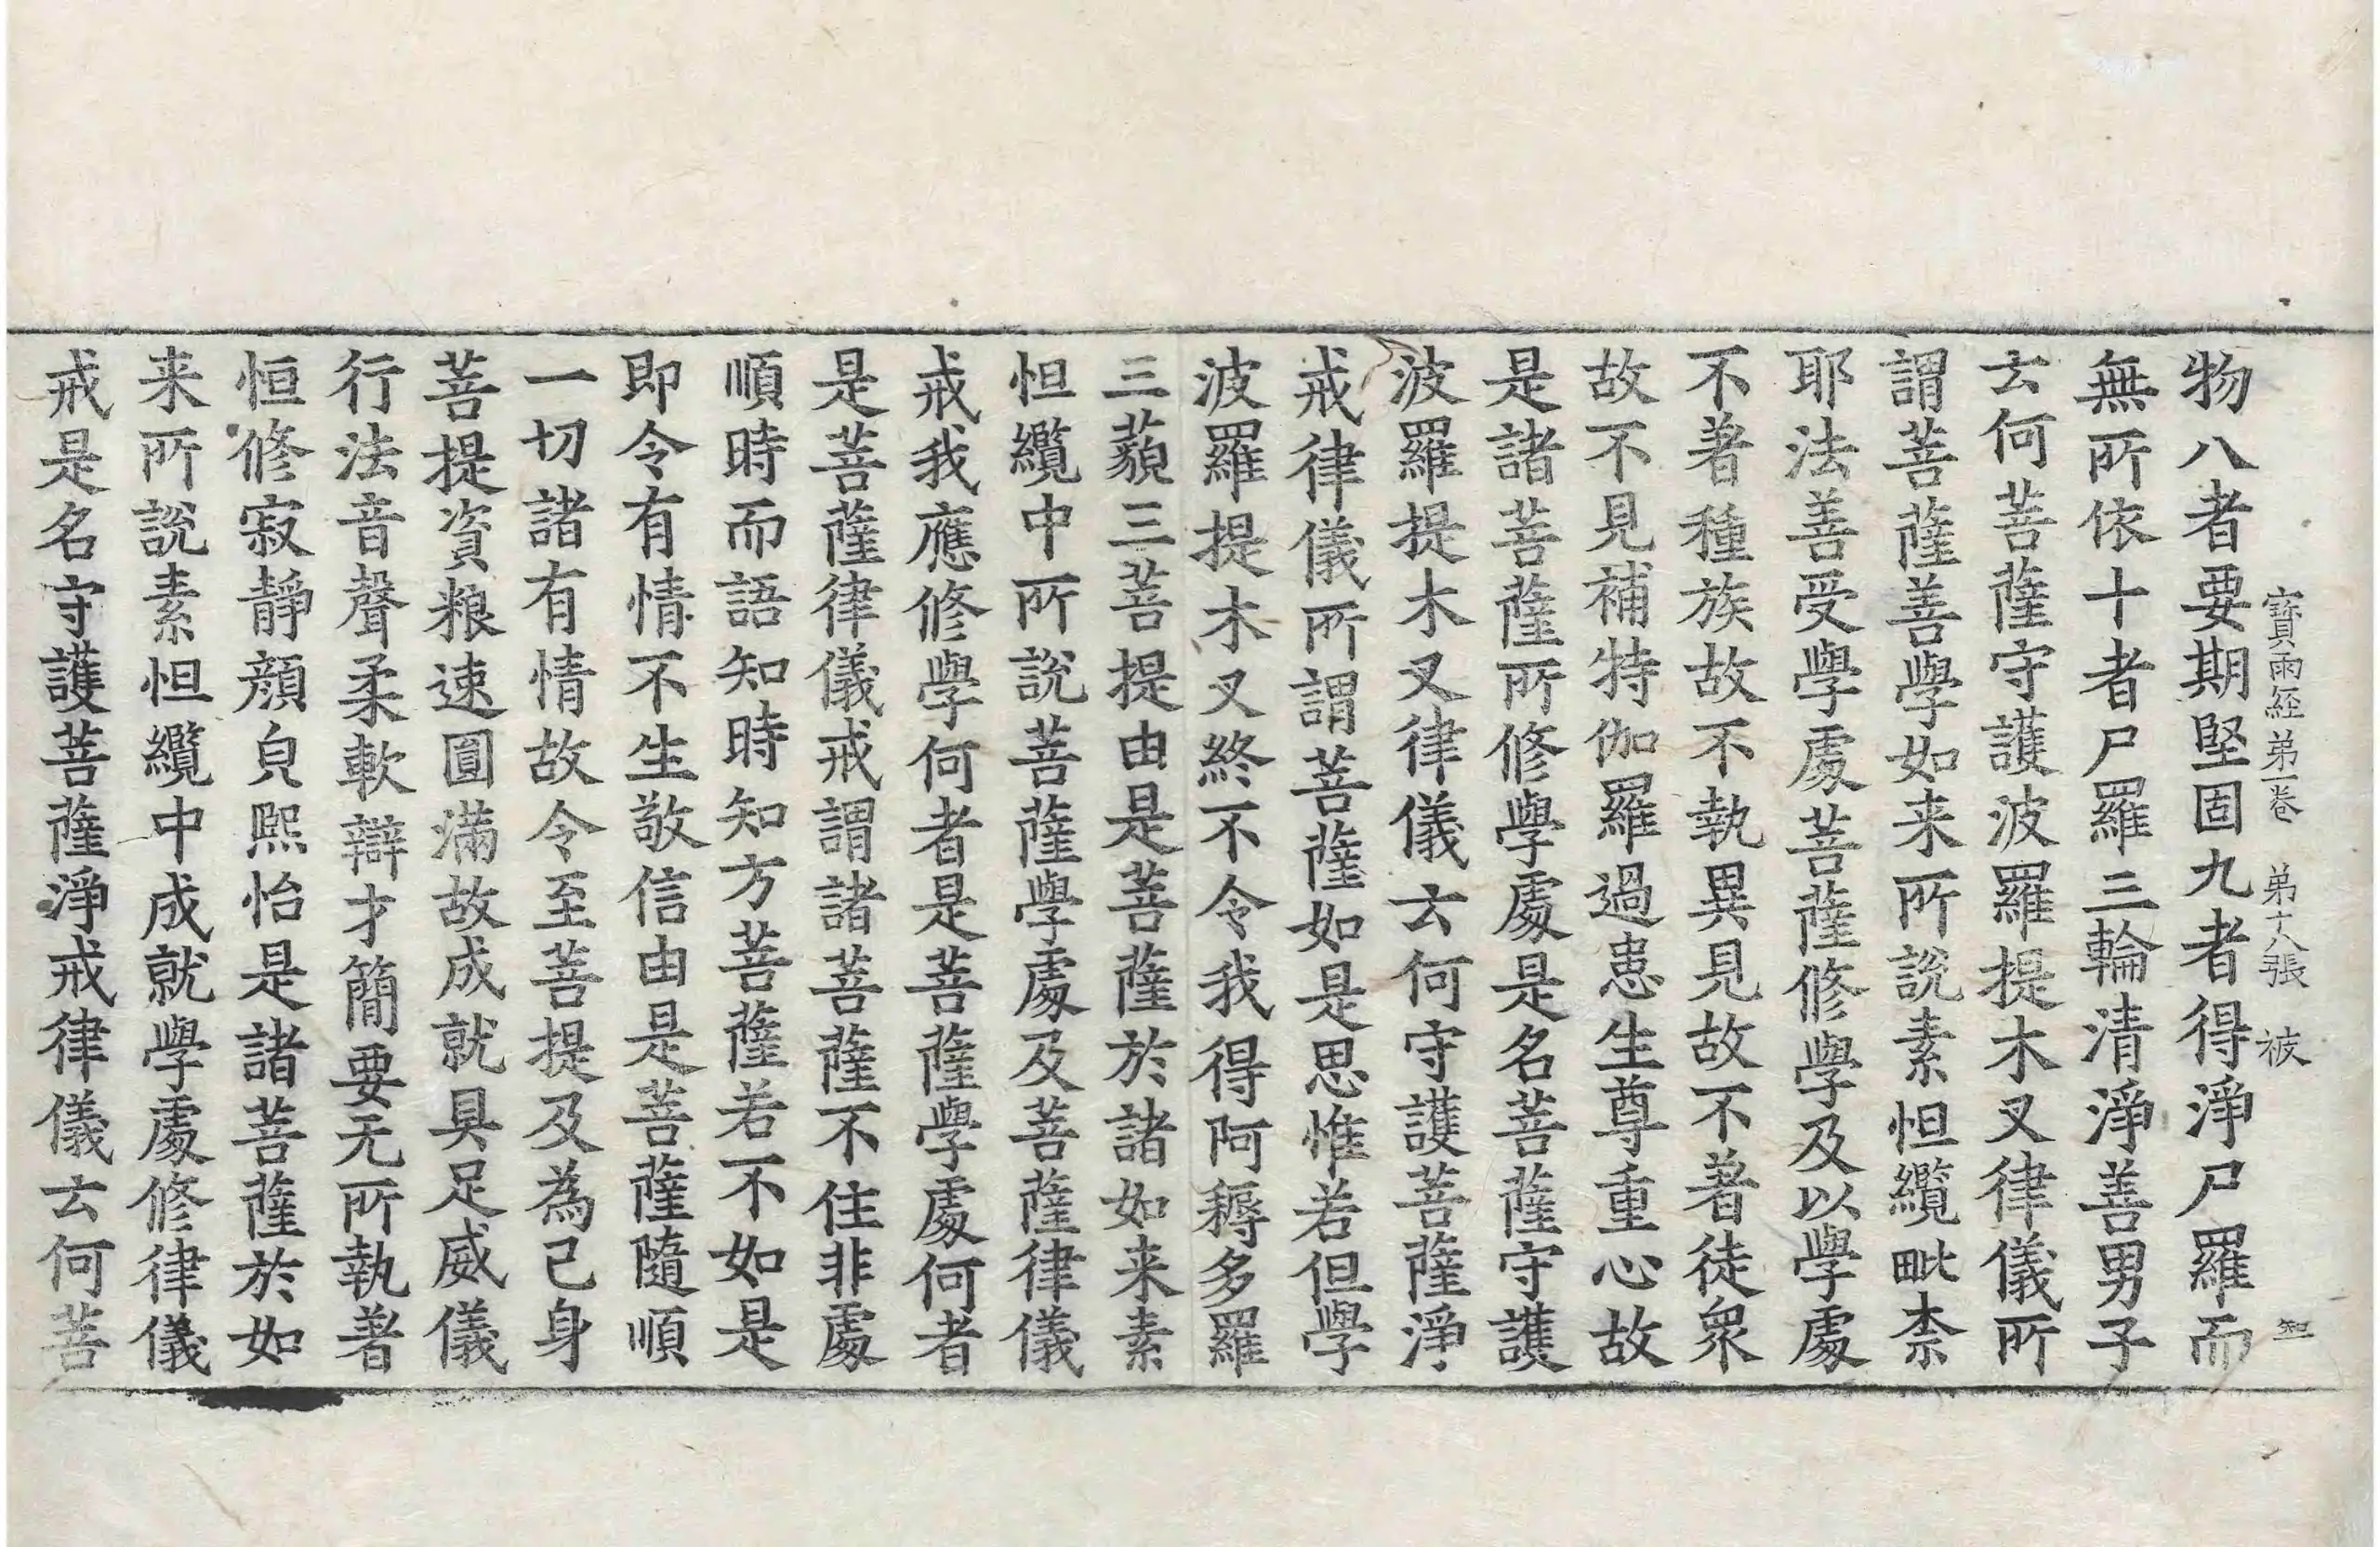 寳雨經弟一卷 弟十八張 被
物八者要期堅固九者得淨尸羅而
無所依十者尸羅三輪清淨善男子
云何菩薩守護波羅提木叉律儀所
謂菩薩善學如来所說素怛纜毗柰
耶法善受學處菩薩修學及以學處
不著種族故不執異見故不著徒衆
故不見補特伽羅過患生尊重心故
是諸菩薩所修學處是名菩薩守護
波羅提木叉律儀云何守護菩薩淨
戒律儀所謂菩薩如是思惟若但學
波羅提木叉終不令我得阿耨多羅
三藐三菩提由是菩薩於諸如来素
怛纜中所說菩薩學處及菩薩律儀
戒我應修學何者是菩薩學處何者
是菩薩律儀戒謂諸菩薩不住非處
順時而語知時知方菩薩若不如是
即令有情不生敬信由是菩薩隨順
一切諸有情故令至菩提及為己身
菩提資粮速圓滿故成就具足威儀
行法音聲柔軟辯才簡要无所執著
恒修寂靜顔皃熙怡是諸菩薩於如
来所說素怛纜中成就學處修律儀
戒是名守護菩薩淨戒律儀云何菩